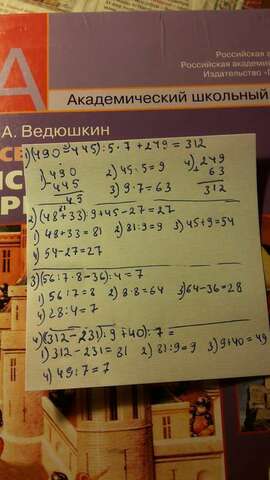 Российская а
Российская академи
Издательство «
А
Академический школьный
А. Ведюшкин
1) (490-445):5·7+249=312
1) 490
445
45
2) 45:5=9
3) 9·7=63
4) 249
63
312
2) (48+33):9+45-27=27
1) 48+33=81 2) 81:9=9 3) 45+9=54
4) 54-27=27
3) (56:7·8-36):4=7
1) 56:7=8 2) 8·8=64 3) 64-36=28
4) 28:4=7
4) (312-231):9+40):7=
1) 312-231=81 2) 81:9=9 3) 9+40=49
4) 49:7=7